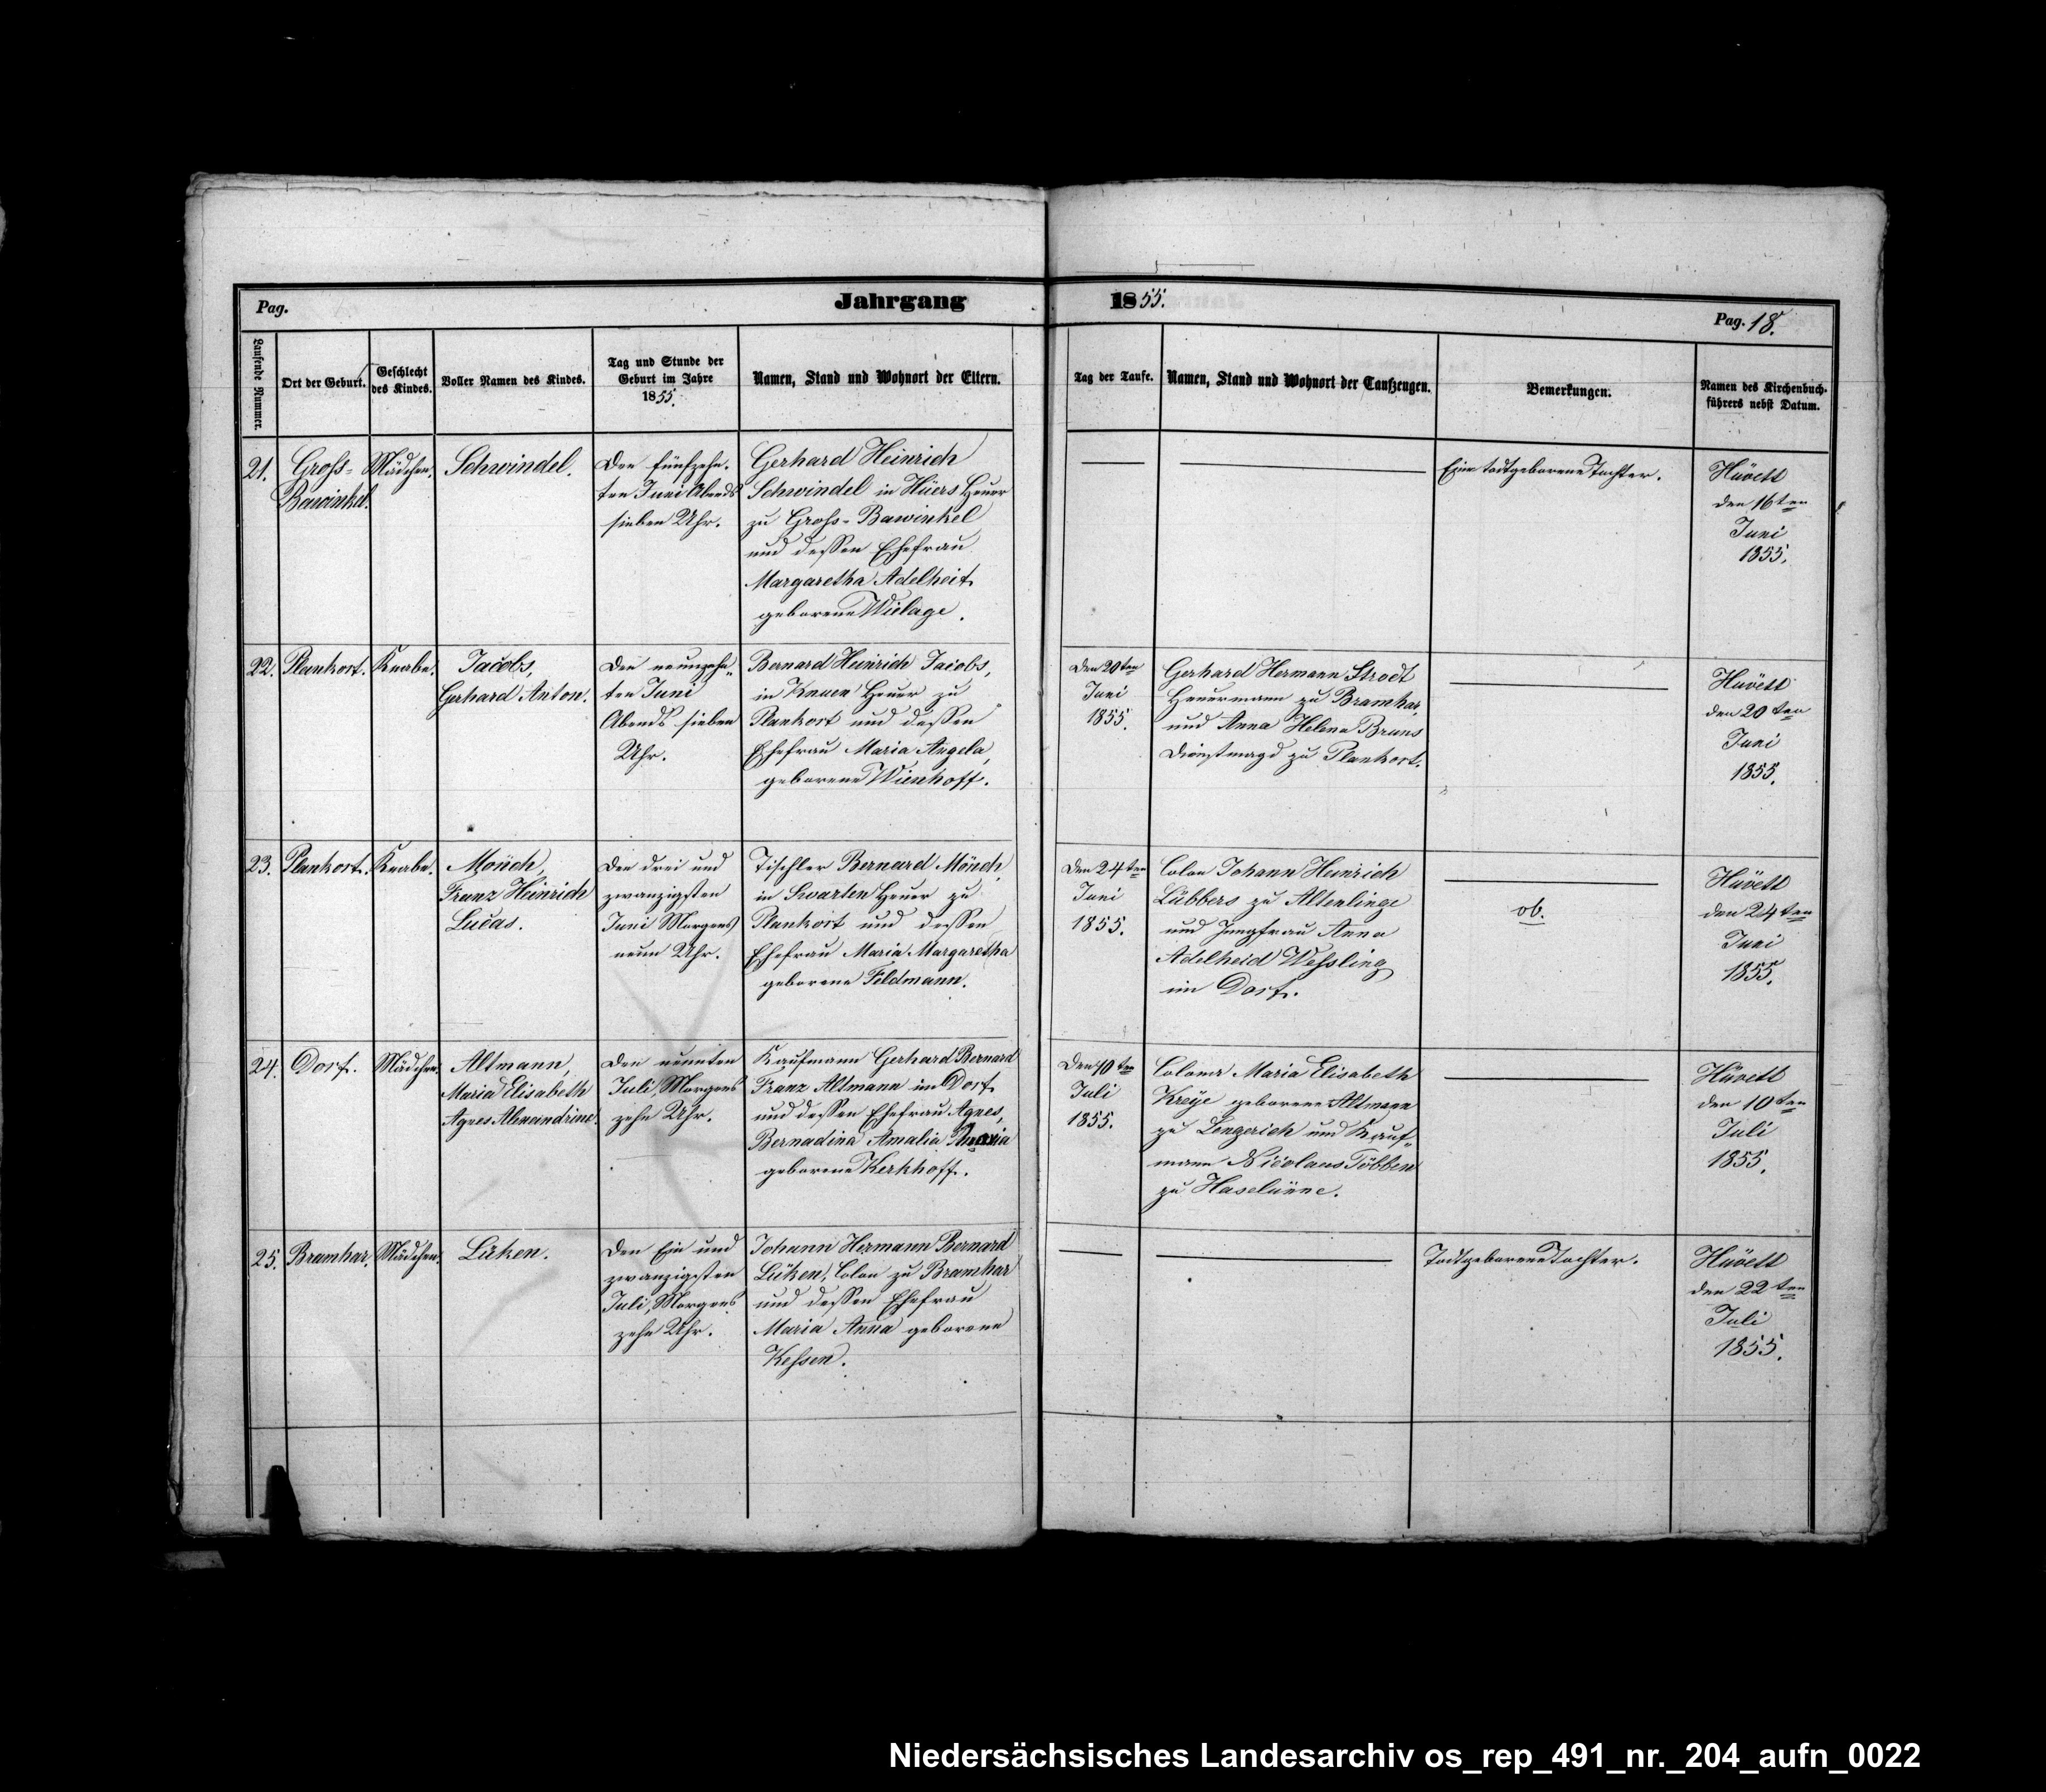 Pag.
Jahrgang
1855.
Pag. 18.
Laufende Nummer.
Ort der Geburt.
Geschlecht
des Kindes.
Voller Namen des Kindes.
Tag und Stunde der
Geburt im Jahre
1855.
Namen, Stand und Wohnort der Eltern.
Tag der Taufe.
Namen, Stand und Wohnort der Taufzeugen.
Bemerkungen.
Namen des Kirchenbuch-
führers nebst Datum.
21.
Groß-
Bawinkel.
Mädchen.
Schwindel.
Den fünfzehn-
ten Juni Abends
sieben Uhr.
Gerhard Heinrich
Schwindel in Hüers Heuer
zu Groß-Bawinkel
und dessen Ehefrau
Margaretha Adelheit
geborene Wielage.
Eine todtgeborene Tochter.
Hüvett
den 16ten
Juni
1855.
22.
Plankort.
Knabe.
Jacobs,
Gerhard Anton.
Den neunzehn-
ten Juni
Abends sieben
Uhr.
Bernard Heinrich Jacobs,
in Knuen Heuer zu
Plankort und dessen
Ehefrau Maria Angela,
geborene Wienhoff.
Den 20ten
Juni
1855.
Gerhard Hermann Strodt
Heuermann zu Bramhar,
und Anna Helena Bruns
Dienstmagd zu Plankort.
Hüvett
den 20ten
Juni
1855.
23.
Plankort.
Knabe.
Mönch,
Franz Heinrich
Lucas.
Den drei und
zwanzigsten
Juni Morgens
neun Uhr.
Tischler Bernard Mönch,
in Swarten Heuer zu
Plankort und dessen
Ehefrau Maria Margaretha
geborene Feldmann.
Den 24ten
Juni
1855.
Colon Johann Heinrich
Lübbers zu Altenlinge
und Jungfrau Anna
Adelheid Weßling
im Dorf.
ob.
Hüvett
den 24ten
Juni
1855.
24.
Dorf.
Mädchen.
Altmann,
Maria Elisabeth
Agnes Alexandrine.
Den neunten
Juli, Morgens
zehn Uhr.
Kaufmann Gerhard Bernard
Franz Altmann im Dorf
und dessen Ehefrau Agnes,
Bernadina Amalia Maria
geborene Kerkhoff.
Den 10ten
Juli
1855.
Colona Maria Elisabeth
Kreÿe geborene Altmann
zu Lengerich und Kauf-
mann Nicolaus Többen
zu Haselünne.
Hüvett
den 10ten
Juli
1855.
25.
Bramhar.
Mädchen.
Lüken.
Den Ein und
zwanzigsten
Juli, Morgens
zehn Uhr.
Johann Hermann Bernard
Lüken, Colon zu Bramhar
und dessen Ehefrau
Maria Anna geborene
Keßen.
Todtgeborene Tochter.
Hüvett
den 22ten
Juli
1855.
Niedersächsisches Landesarchiv os_rep_491_nr._204_aufn_0022